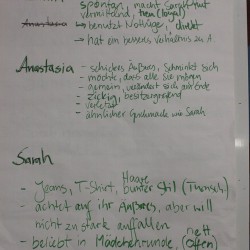 spontan, macht Sarah Mut
vermittelnd, treu (loyal)
benutzt Notlüge, direkt
→ hat ein besseres Verhältnis zu A.
Anastasia - schickes Äußeres, schminkt sich
- möchte, dass alle sie mögen
- gemein, verändert sich am Ende
- zickig, besitzergreifend
- verletzt
- ähnlicher Geschmack wie Sarah
Sarah
- Jeans, T-Shirt, Haare bunter Stil (Tunsch)
- achtet auf ihr Äußeres, aber will
nicht zu stark auffallen
- beliebt in Mädchenrunde, nett (offen)